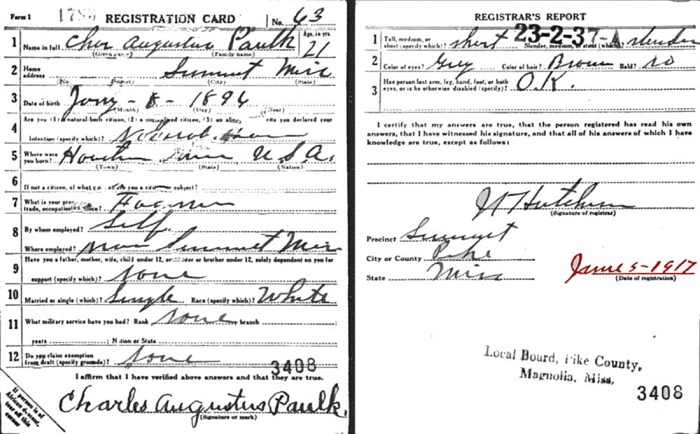 Form 1 REGISTRATION CARD No. 63
1 Name in full Chas Augustus Paulk Age, in yrs. 21
(Given name) (Family name)
2 Home address Summit Miss
(No.) (Street) (City) (State)
3 Date of birth Jany - 8 - 1896
(Month) (Day) (Year)
4 Are you (1) a natural-born citizen, (2) a naturalized citizen, (3) an alien, declared your
intention (specify which)?
5 Where were you born? U.S.A.
(Town) (State) (Nation)
6 If not a citizen, of what are you a citizen or subject?
7 What is your present trade, occupation, or office? Farmer
8 By whom employed? Self
Where employed? Near Summit Miss
9 Have you a father, mother, wife, child under 12, or a sister or brother under 12, solely dependent on you for
support (specify which)? None
10 Married or single (which)? Single Race (specify which)? White
11 What military service have you had? Rank None branch
years ; Nation or State
12 Do you claim exemption from draft (specify grounds)? None
3408
I affirm that I have verified above answers and that they are true.
Charles Augustus Paulk.
(Signature or mark)
If person is of African descent, tear off this corner
REGISTRAR'S REPORT
23-2-37-A
1 Tall, medium, or short (specify which)? short Slender, medium, or stout (which)? slender
2 Color of eyes? Grey Color of hair? Brown Bald? no
3 Has person lost arm, leg, hand, foot, or both eyes, or is he otherwise disabled (specify)? O.K.
I certify that my answers are true, that the person registered has read his own
answers, that I have witnessed his signature, and that all of his answers of which I have
knowledge are true, except as follows:
(Signature of registrar)
Precinct Summit
City or County Pike
State Miss
June 5-1917
(Date of registration)
Local Board, Pike County,
Magnolia, Miss.
3408